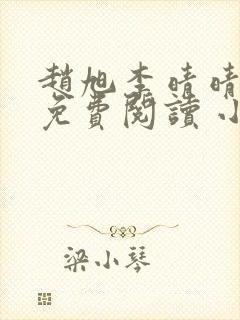 趙旭李晴晴
免費閱讀小
梁小琴